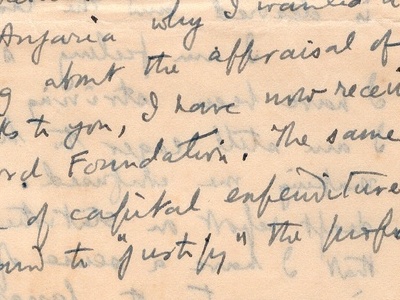 why I wanted a
Angaria
about the appraisal of
ks to you, I have now recei
ord Foundation. The same
of capital expenditure
ound to "justify" the profe